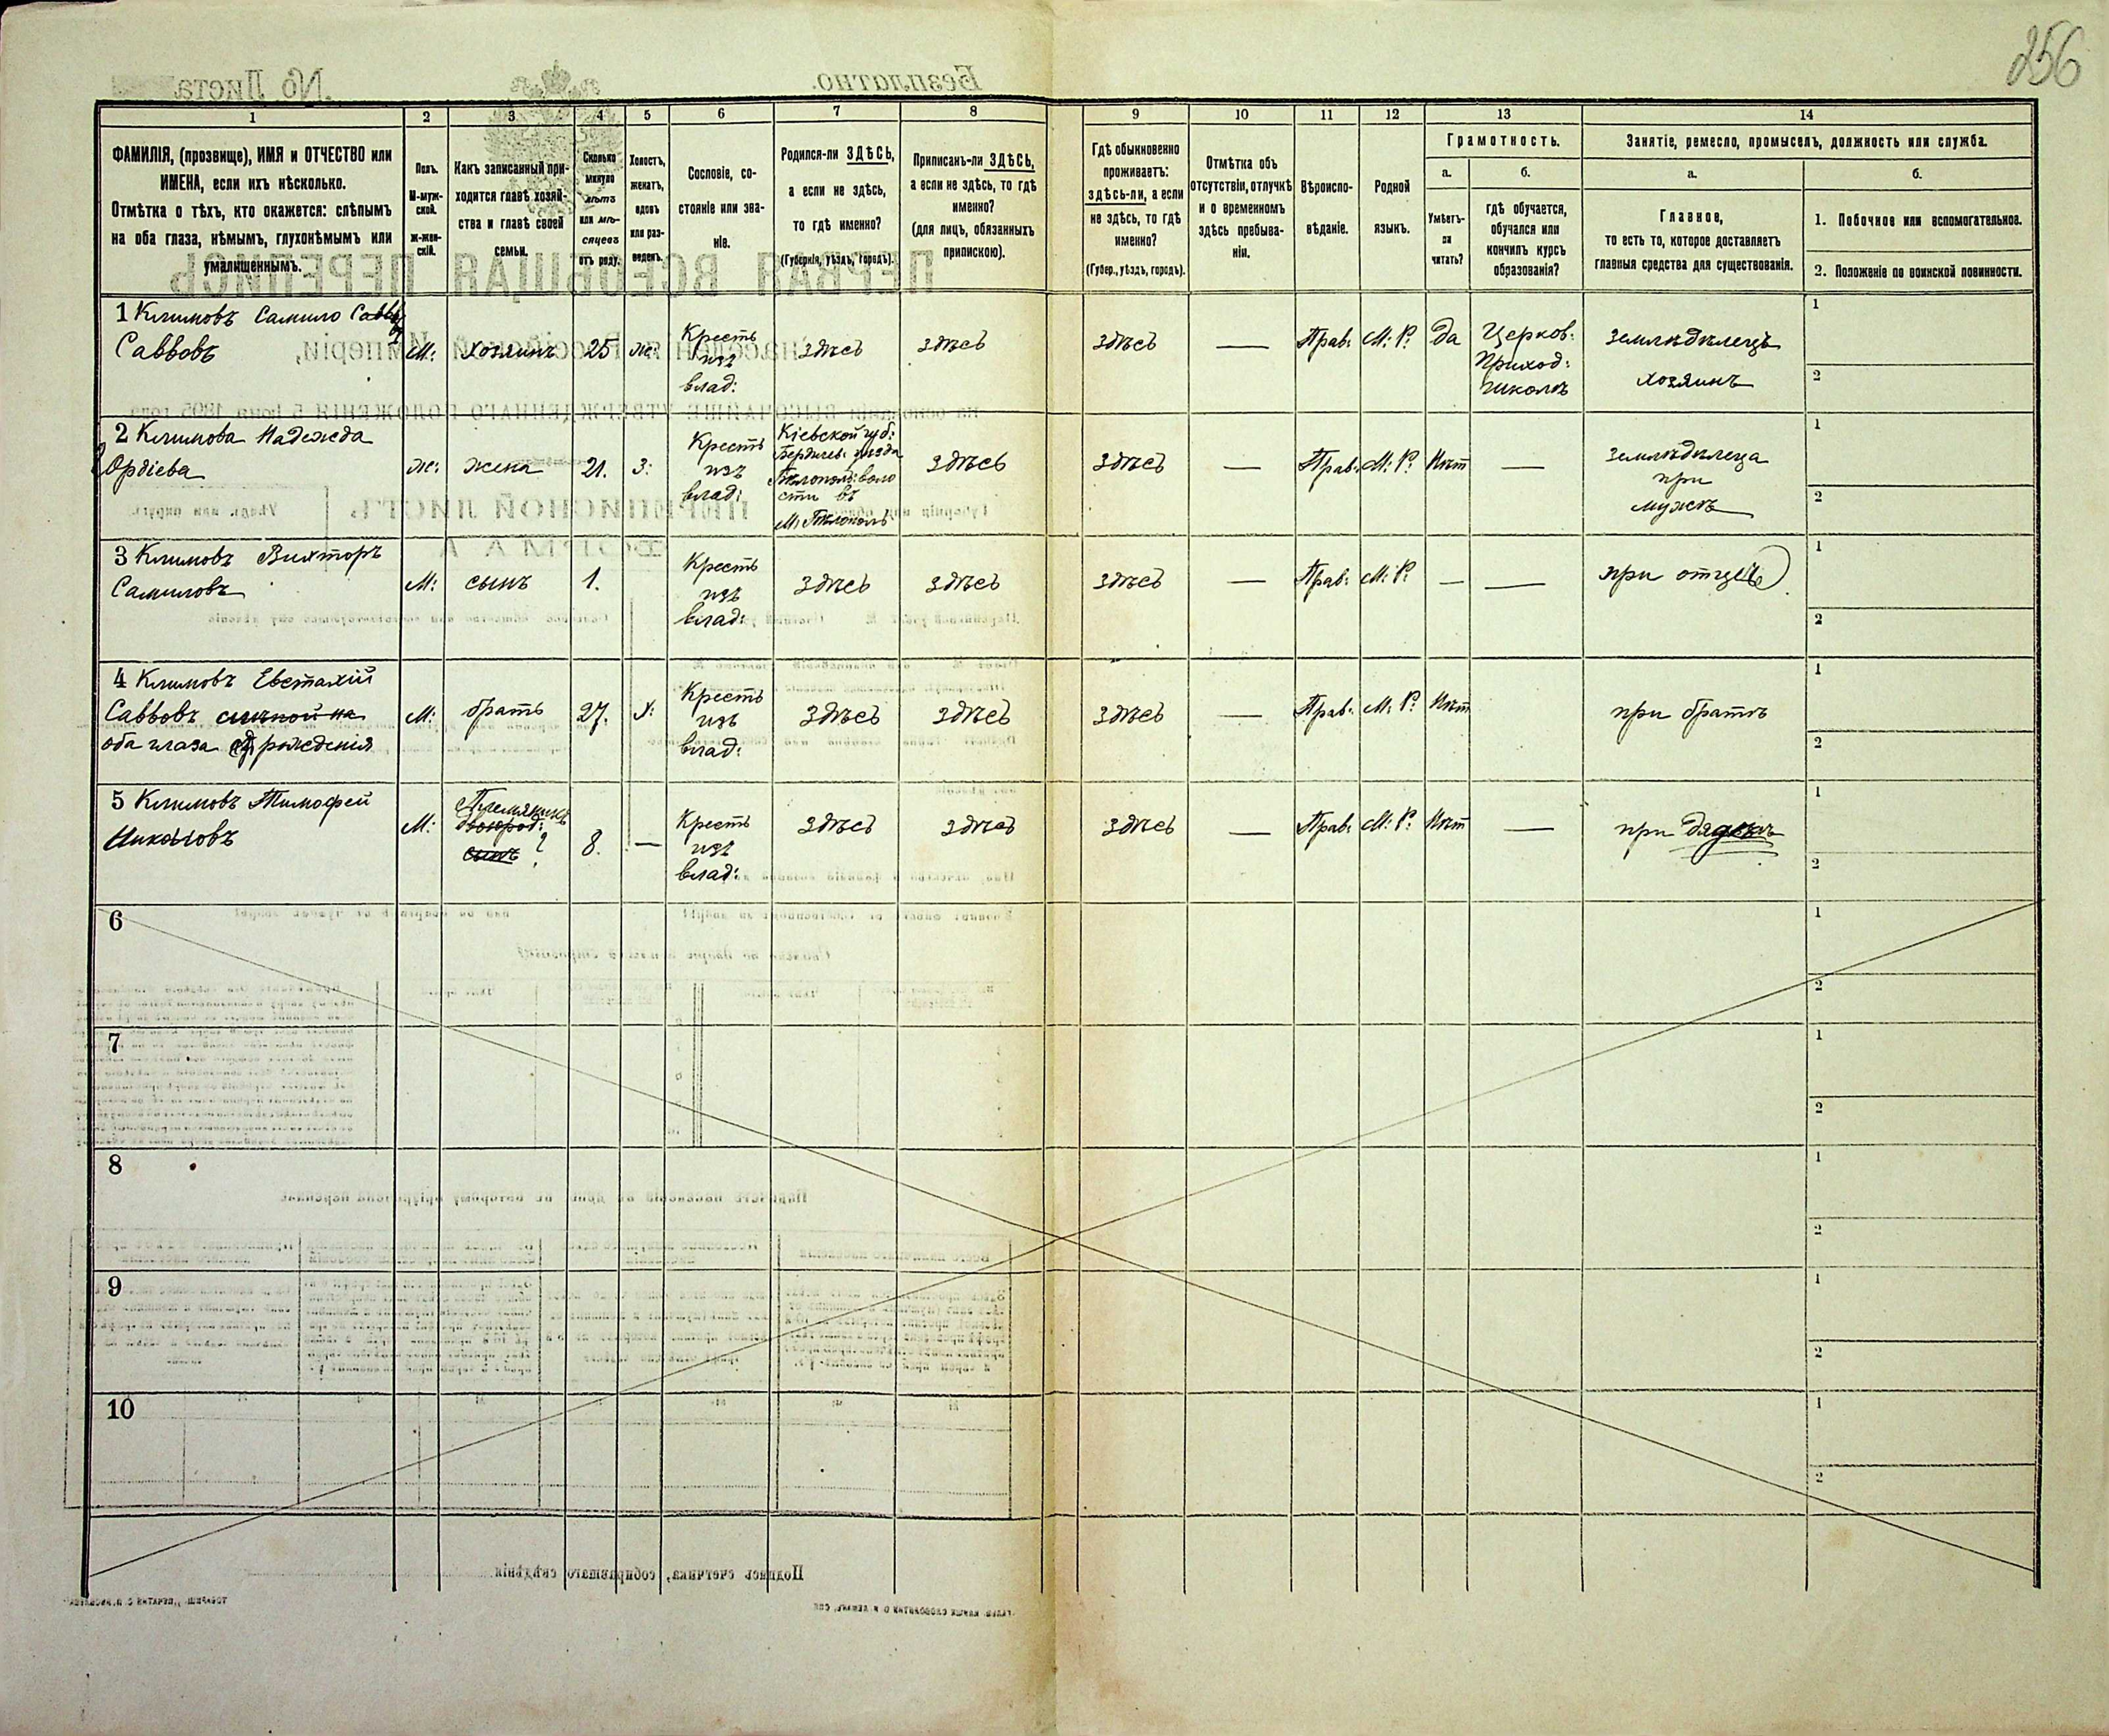 256
1
2
3
4
5
6
7
8
9
10
11
12
13
14
ФАМИЛІЯ, (прозвище), ИМЯ и ОТЧЕСТВО или
ИМЕНА, если ихъ нѣсколько.
Отмѣтка о тѣхъ, кто окажется: слѣпымъ
на оба глаза, нѣмымъ, глухонѣмымъ или
умалишеннымъ.
Полъ.
М-муж-
ской.
Ж-жен-
скій.
Какъ записанный при-
ходится главѣ хозяй-
ства и главѣ своей
семьи.
Сколько
минуло
лѣтъ
или мѣ-
сяцевъ
отъ роду.
Холостъ,
женатъ,
вдовъ
или раз-
веденъ.
Сословіе, со-
стояніе или зва-
ніе.
Родился-ли ЗДѢСЬ,
а если не здѣсь,
то гдѣ именно?
(Губернія, уѣздъ, городъ).
Приписанъ-ли ЗДѢСЬ,
а если не здѣсь, то гдѣ
именно?
(для лицъ, обязанныхъ
припискою).
Гдѣ обыкновенно
проживаетъ:
здѣсь-ли, а если
не здѣсь, то гдѣ
именно?
(Губер., уѣздъ, городъ).
Отмѣтка объ
отсутствіи, отлучкѣ
и о временномъ
здѣсь пребыва-
ніи.
Вѣроиспо-
вѣданіе.
Родной
языкъ.
Грамотность.
а.
Умѣетъ-
ли
читать?
б.
гдѣ обучается,
обучался или
кончилъ курсъ
образованія?
Занятіе, ремесло, промыселъ, должность или служба.
а.
Главное,
то есть то, которое доставляетъ
главныя средства для существованія.
б.
1. Побочное или вспомогательное.
2. Положеніе по воинской повинности.
1 Климовъ Самило
Саввовъ
М:
хозяинъ
25
же:
Кресть
изъ
влад:
здѣсь
здѣсь
здѣсь
—
Прав:
М: Р:
да
Церков:
Приход:
школѣ
земледѣлецъ
хозяинъ
1
2
2 Климова Надежда
Ордіева
же:
жена
21.
З:
Кресть
изъ
влад:
Кіевской губ:
Бердичев: уѣзда
Бѣлополь: воло
сти въ
М: Бѣлополь
здѣсь
здѣсь
—
Прав:
М: Р:
Нѣт
—
земледѣлеца
при
мужѣ
1
2
3 Климовъ Вихторъ
Самиловъ
М:
сынъ
1.
Кресть
изъ
влад:
здѣсь
здѣсь
здѣсь
—
Прав:
М: Р:
—
—
при отцѣ
1
2
4 Климовъ Евстахій
Саввовъ слѣпой на
оба глаза отъ рожденія
М:
братъ
27.
х:
Кресть
изъ
влад:
здѣсь
здѣсь
здѣсь
—
Прав:
М: Р:
Нѣт
—
при братѣ
1
2
5 Климовъ Тимофей
Николовъ
М:
Племянникъ
двоюрод:
сынъ ?
8.
—
Кресть
изъ
влад:
здѣсь
здѣсь
здѣсь
—
Прав:
М: Р:
Нѣт
—
при дядькѣ
1
2
6
1
2
7
1
2
8
1
2
9
1
2
10
1
2
№ Листа
Безплатно.
ПЕРВАЯ ВСЕОБЩАЯ ПЕРЕПИСЬ
населенія Россійской Имперіи,
на основаніи ВЫСОЧАЙШЕ УТВЕРЖДЕННАГО ПОЛОЖЕНІЯ 5 іюня 1895 года
ПЕРЕПИСНОЙ ЛИСТЪ
ФОРМА А
Подпись счетчика, собиравшаго свѣдѣнія